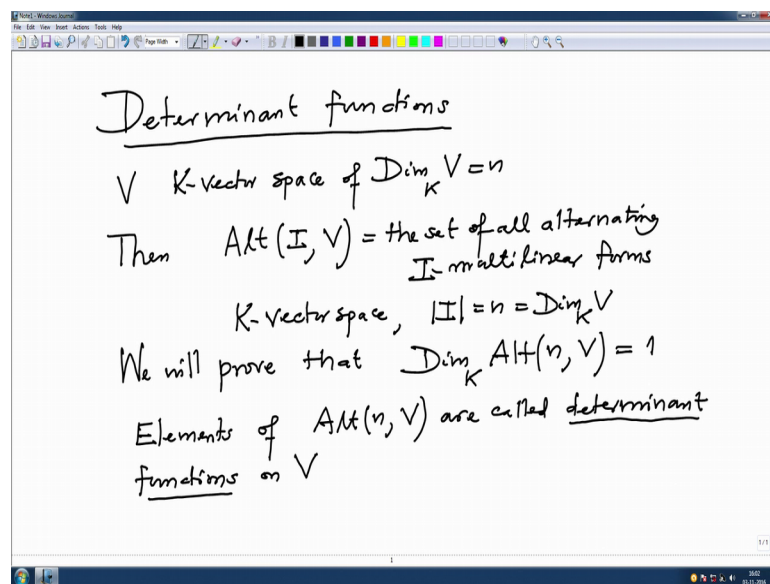 Note1 - Windows Journal
File Edit View Insert Actions Tools Help
Page Width
B I
Determinant functions
V K-vector space of Dim_K V = n
Then Alt(I, V) = the set of all alternating
I-multilinear forms
K-vector space, |I| = n = Dim_K V
We will prove that Dim_K Alt(n, V) = 1
Elements of Alt(n, V) are called determinant
functions on V
1/1
1
16:02